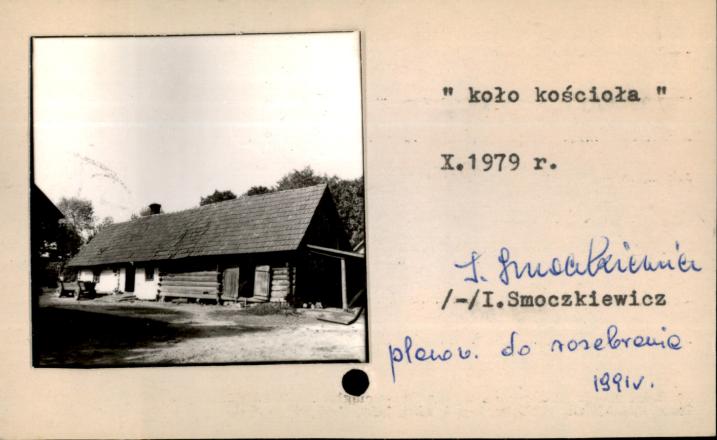 " koło kościoła "
X.1979 r.
I. Smoczkiewicz
/-/I.Smoczkiewicz
planow. do rozebrania
1991r.